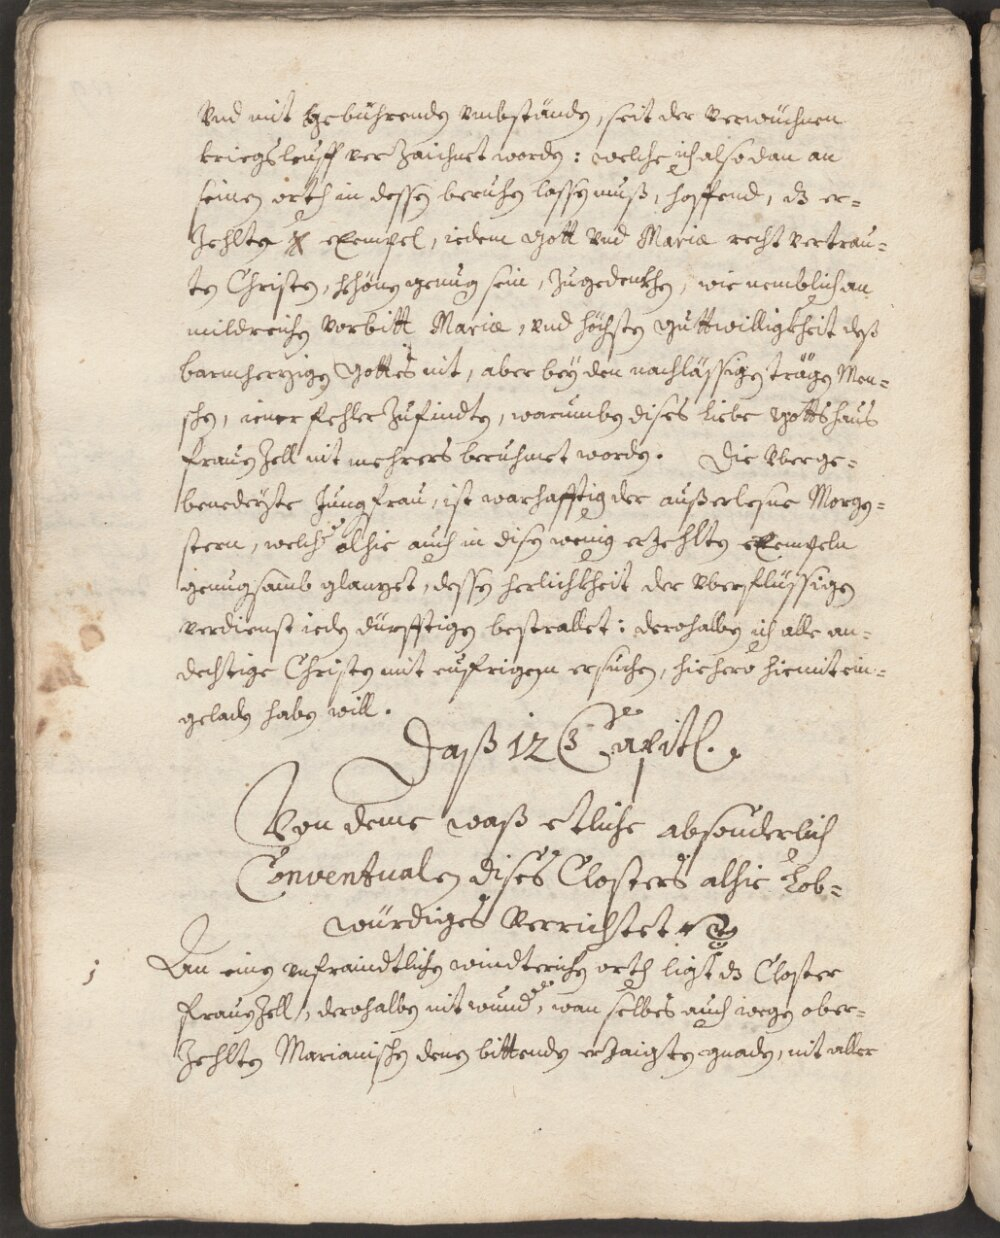 Vnd mit gebührenden vmbständen, seit der verwüchnen
kriegsleüff verzaichnet worden: welche ich also dan an
seinen orth in dessen beruhen lassen muß, hoffend, dz er=
zehlte exempel, iedem Gott vnd Mariæ recht vertrau=
ten Christen, schöne genug sein, zugedenkhen, wie nemblich an
mildreichen Vorbitt Mariæ, vnd höchsten guttwilligkheit deß
barmherzigen Gottes nit, aber bey den nachlässigen trägen Men=
schen, iener fehler zufindten, warumben dises liebe Gottshaus
frauenzell nit mehrers beruhmet worden. Die Vberge=
benedeyte Jungfrau, ist warhafftig der außerlesne Morgen=
stern, welche alhie auch in disen wenig erzehlten exempeln
genugsamb glanzet, dessen herlichkheit der vberflüssigen
verdienst ieden dürfftigen bestrallet: derohalben ich alle an=
dechtige Christen mit eufrigem ersuchen, hiehero hiemit ein=
geladen haben will.
Daß 12 Capitl.
Von deme waß etliche absonderlich
Conventualen dises Closters alhie Lob=
würdiges verrichtet
1 An einen vnfraindtlichen windterichen orth ligt dz Closter
frauenzell, derohalben nit wunder, wan selbes auch wegen ober=
zehlten Marianischen denen bittenden erzaigten gnaden, nit aller